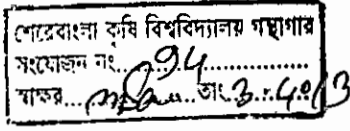 শেরেবাংলা কৃষি বিশ্ববিদ্যালয় গন্থাগার
সংযোজন নং...94...
স্বাক্ষর... তাং 3.4.13